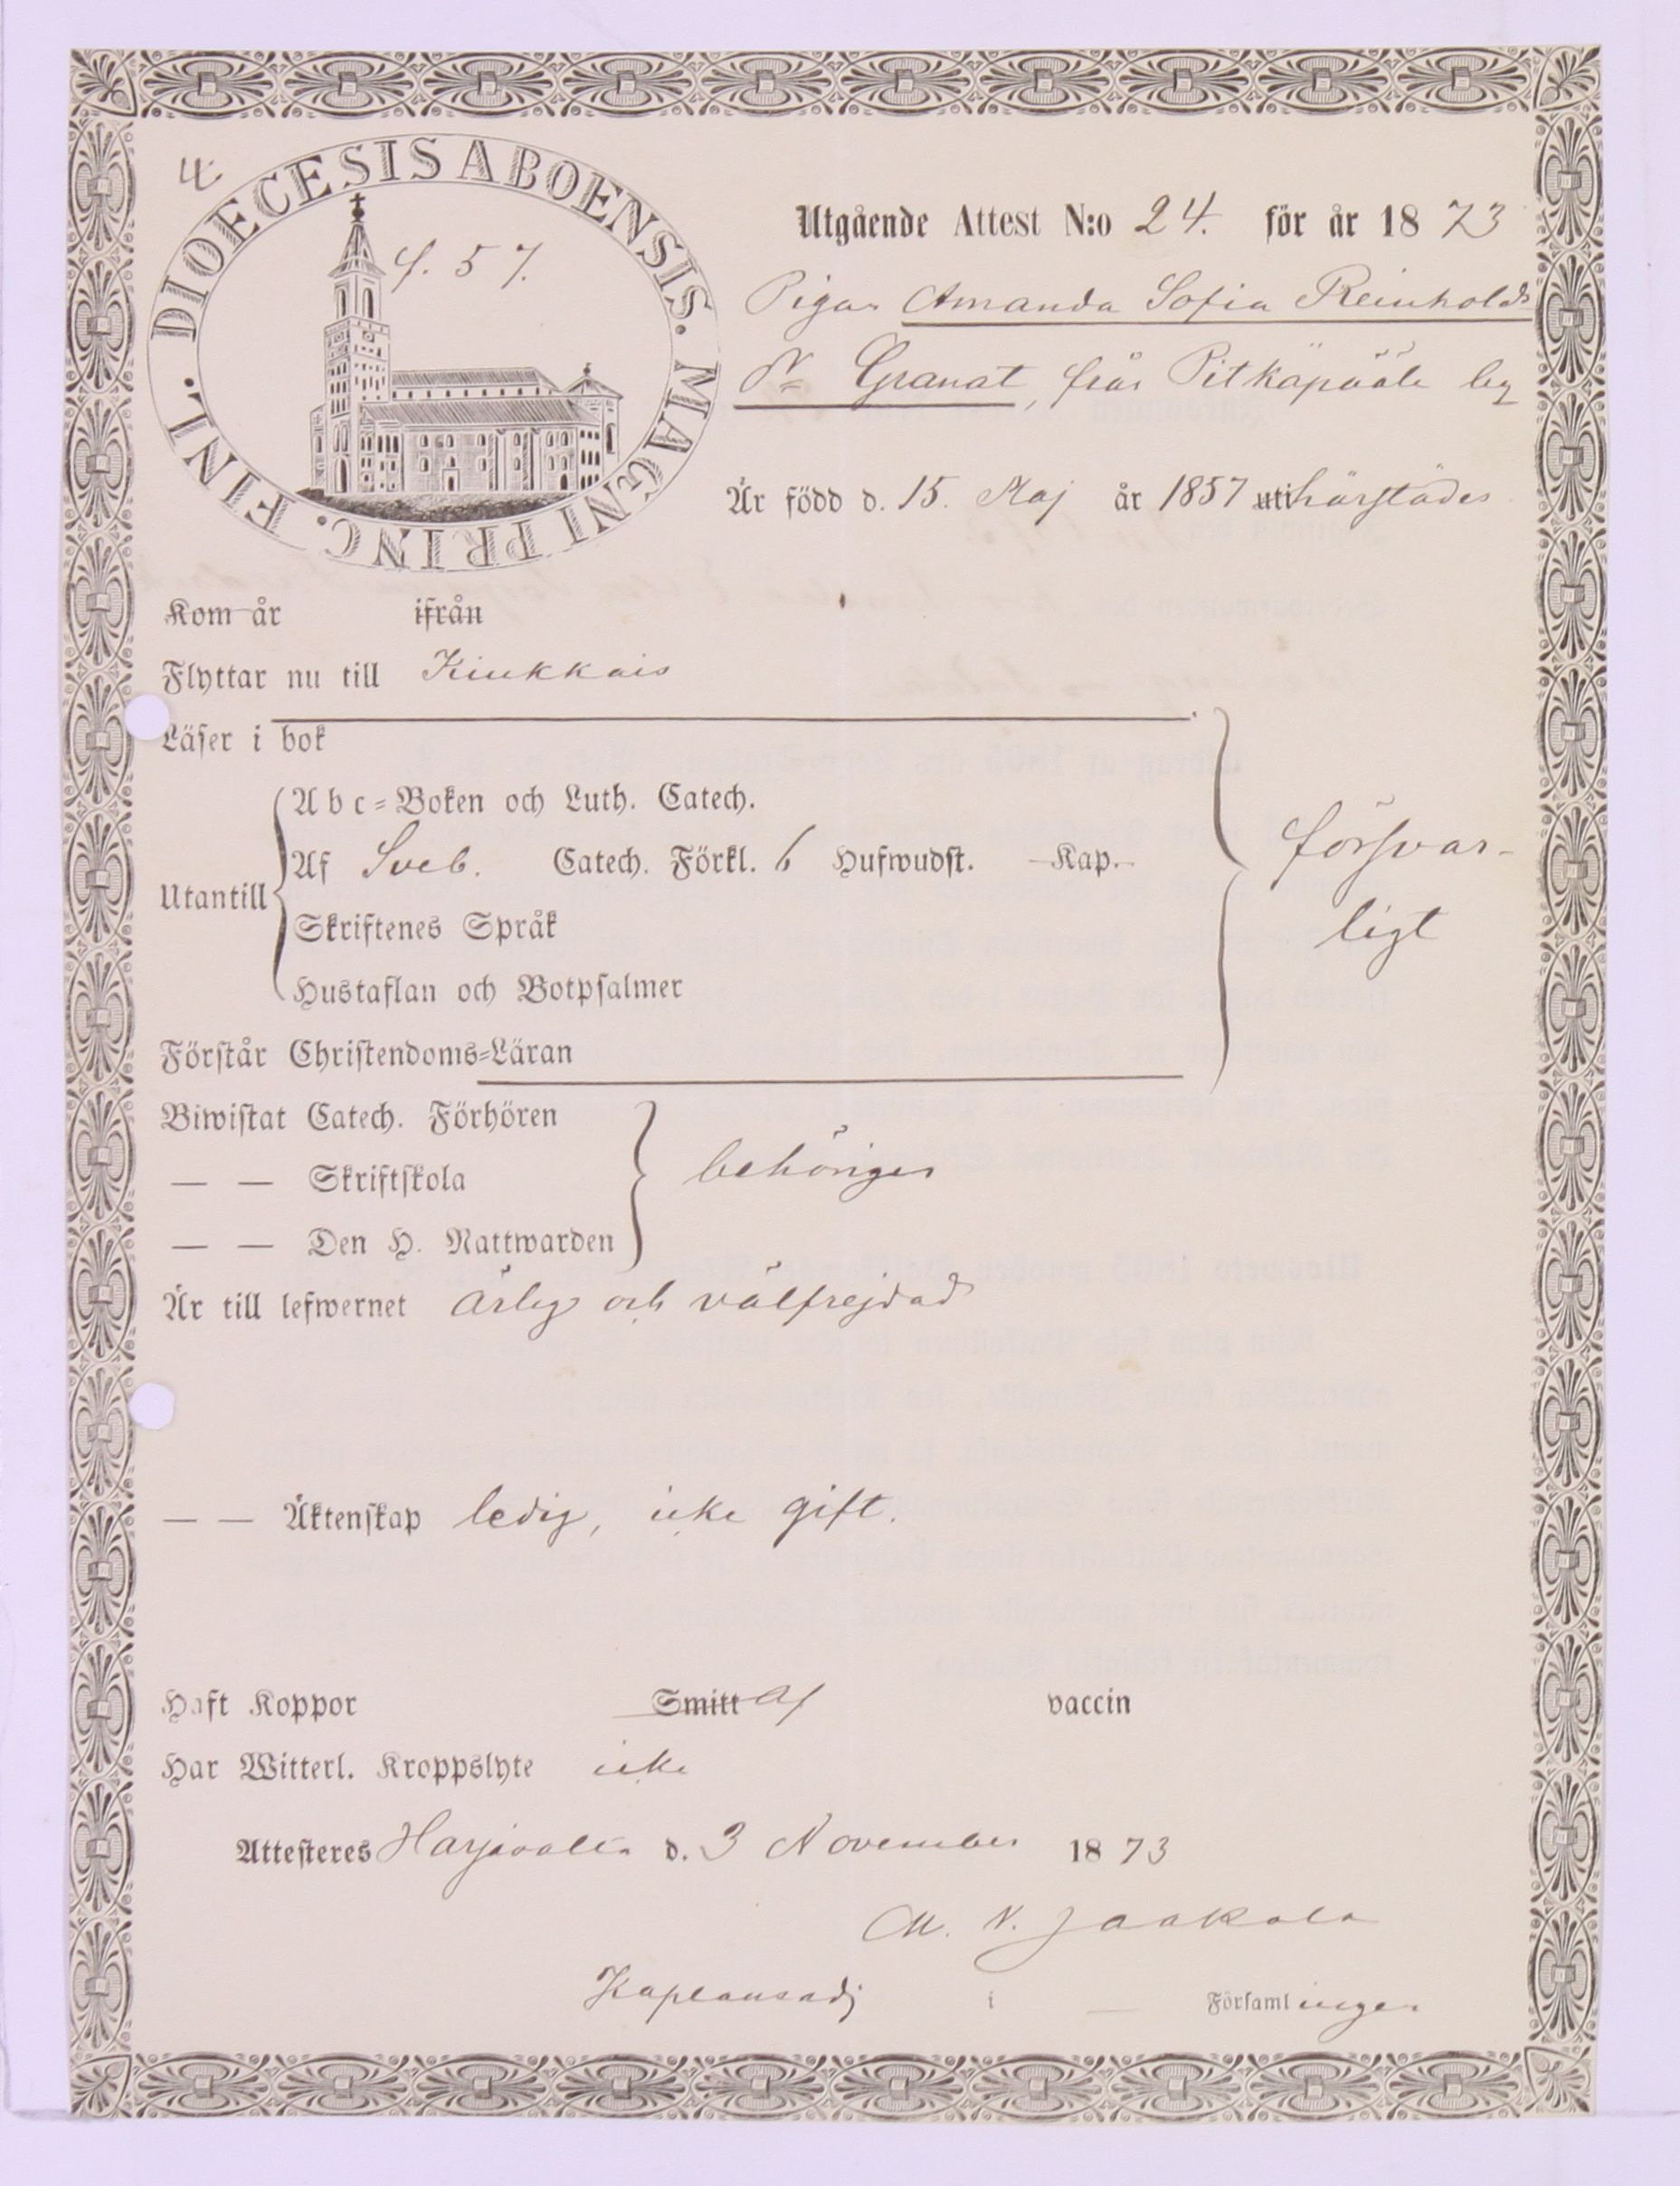 4.
DIOECESIS ABOENSIS. MAGNI PRINC. FINL.
f. 57.
Utgående Attest N:o 24. för år 1873
Pigan Amanda Sofia Reinholds
Dr Granat, från Pitkäpäälä by
Är född d. 15. Maj år 1857 uti härstädes
Kom år ifrån
Flyttar nu till Kiukkais
Läser i bok
Abc=Boken och Luth. Catech.
Af Sveb. Catech. Förkl. 6 Hufwudst. Kap.
Utantill
Skriftenes Språk
Hustaflan och Botpsalmer
Förstår Christendoms=Läran
försvar-
ligt
Biwistat Catech. Förhören
— — Skriftskola
— — Den H. Nattwarden
behörigen
Är till lefwernet ärlig och välfrejdad
— — Äktenskap ledig, icke gift.
Haft Koppor Smitt af vaccin
Har Witterl. Kroppslyte icke
Attesteres Harjavalta d. 3 November 1873
M. N. Jaakola
Kaplansadj i — Församlingen